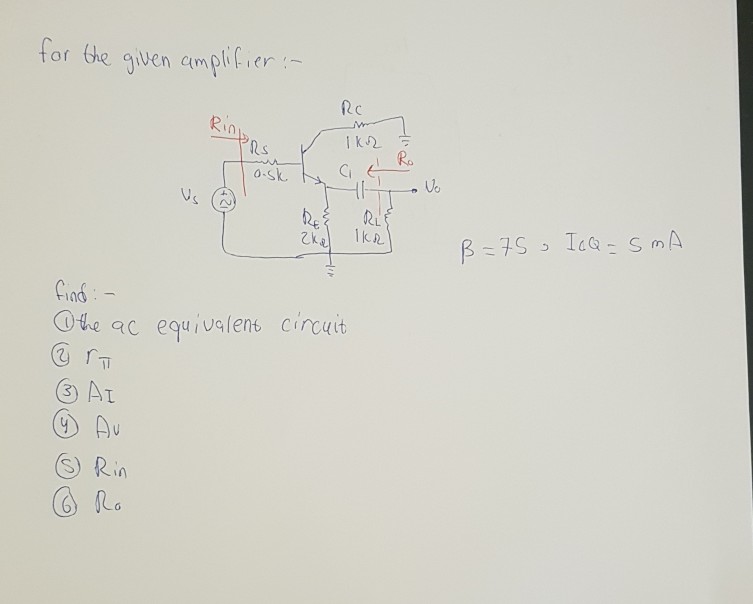 for the given amplifier :-
Rc
1kΩ
Rin
Rs
0.5k
C1
Ro
Vo
Vs
RE
2kΩ
RL
1kΩ
β = 75 , IcQ = 5 mA
find :-
① the ac equivalent circuit
② rπ
③ AI
④ Av
⑤ Rin
⑥ Ro